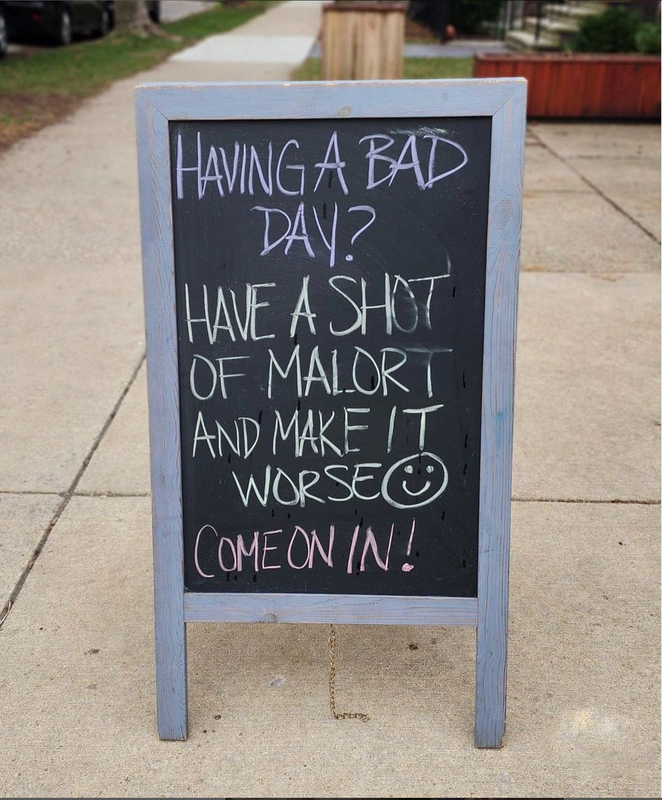 HAVING A BAD
DAY?
HAVE A SHOT
OF MALORT
AND MAKE IT
WORSE
COME ON IN!